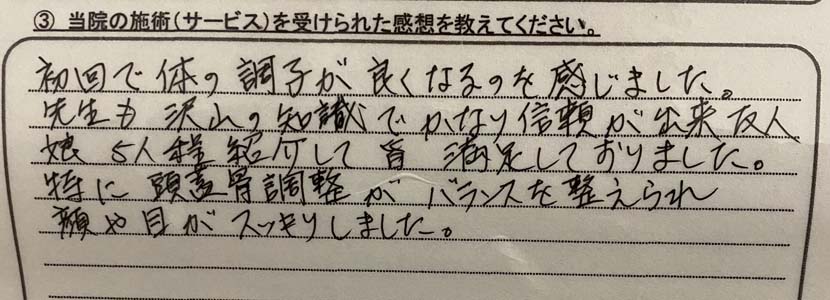 ③ 当院の施術(サービス)を受けられた感想を教えてください。
初回で体の調子が良くなるのを感じました。
先生も沢山の知識でかなり信頼が出来友人
娘 5人様紹介して皆 満足しておりました。
特に頭蓋骨調整がバランスを整えられ
顔や目がスッキリしました。